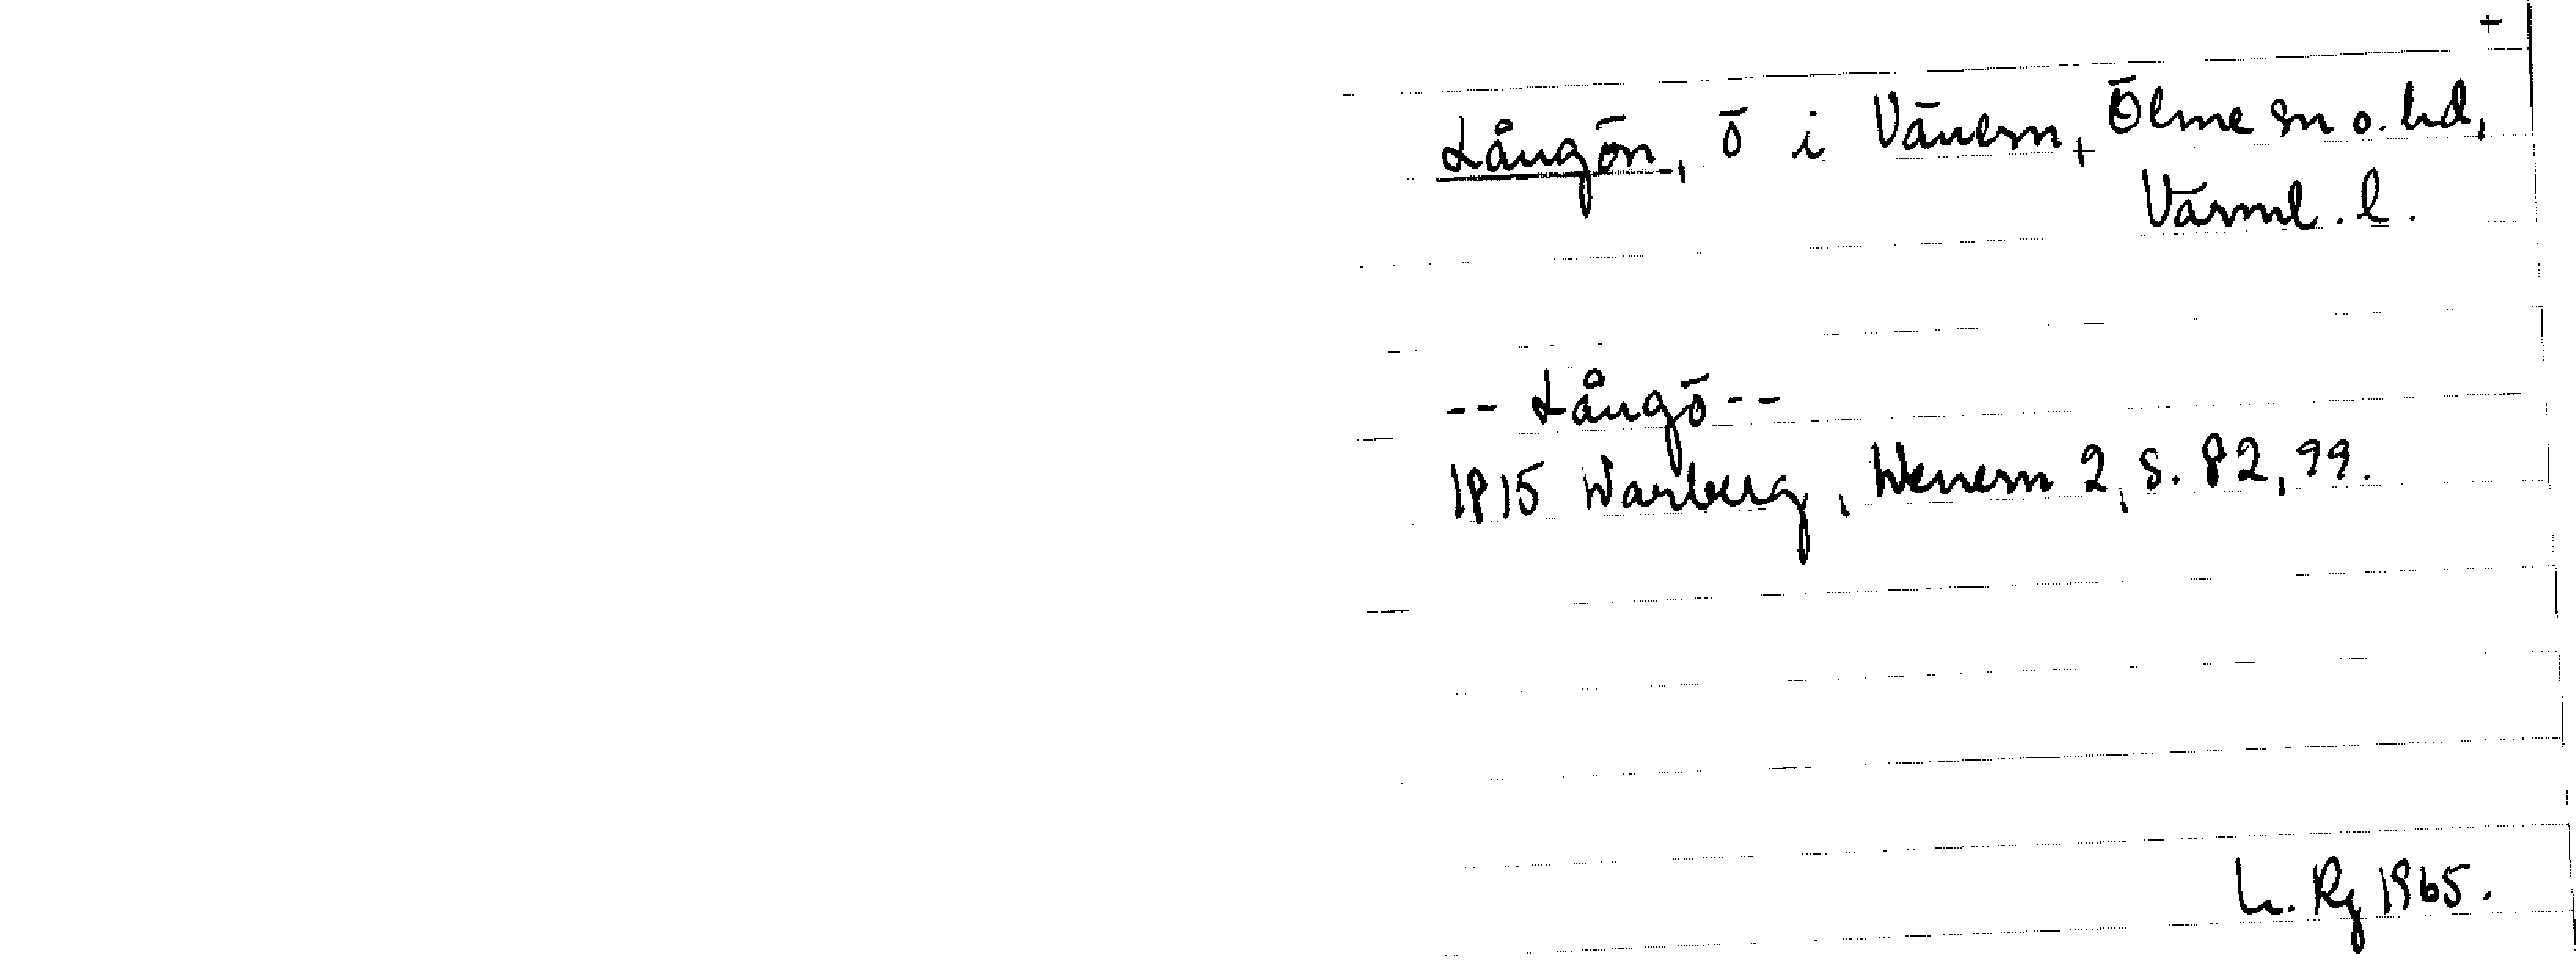 +
Långön, ö i Vänern, Ölme sn o. hd,
Värml. l.
-- Långö --
1815 Warberg, Wenern 2, s. 82, 99.
L. Rg 1965.